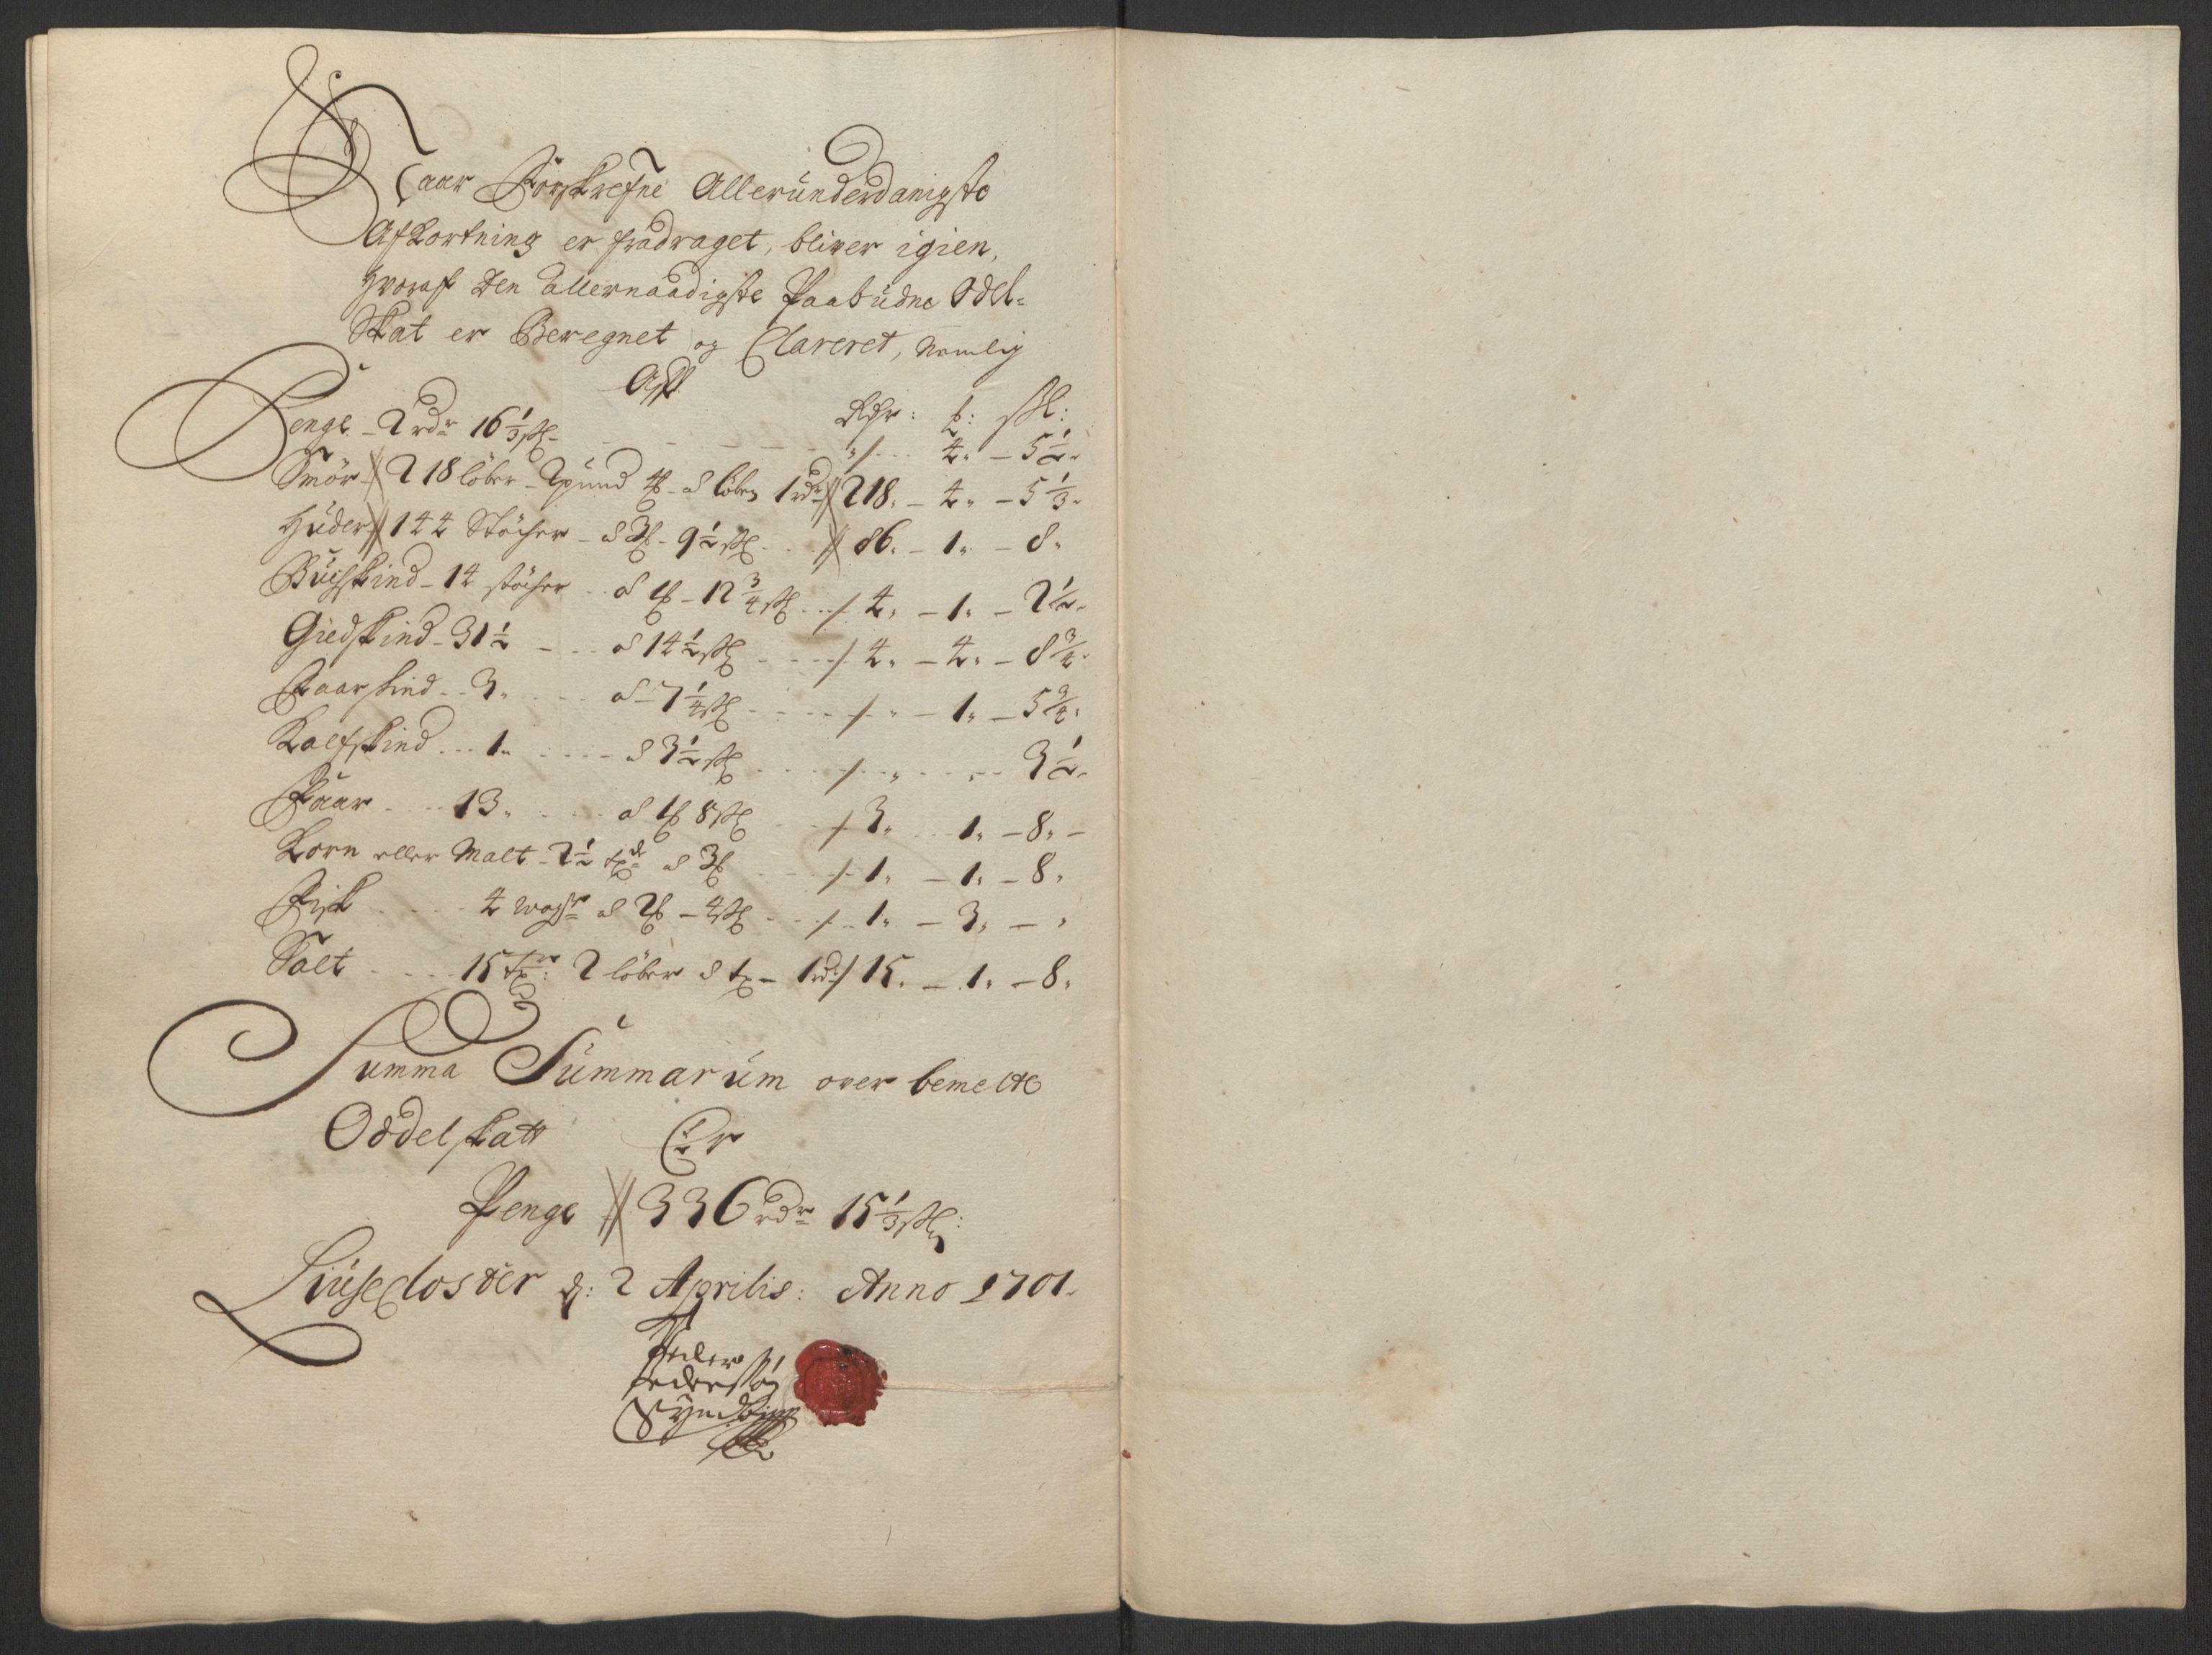 Naar Forskrefne Allerunderdanigste
Afkortning er fradraget, bliver igien,
hvoraf den allernaadigste Paabudne Odel-
Skat er Beregnet og Clareret, Nemlig
Aff
Rdr: ƒ: sk:
Penge - 2 rdr 16 1/3 sk - " - 4 - 5 1/2
Smör - 218 löber - 2 pund 4 ƒ - á löben 1 rdr 218 - 4 - 5 1/3
Huder 144 Stöcher - á 3 ƒ - 9 1/2 sk - 86 - 1 - 8
Buchskind - 14 stöcher - á 1 ƒ - 12 3/4 sk - 4 - 1 - 2 1/2
Giedskind - 31 1/2 - á 14 1/2 sk - 4 - 4 - 8 3/4
Faarskind - 3 - á 7 1/4 sk - " - 1 - 5 3/4
Kalfskind - 1 - á 3 1/2 sk - " - " 3 1/2
Faar - 13 - á 1 ƒ 8 sk - 3 - 1 - 8
Korn eller Malt - 2 1/2 td á 3 ƒ - 1 - 1 - 8
Fisk - 4 woger á 2 ƒ - 4 sk - 1 - 3 - "
Salt - 15 tr: 2 löber á t - 1 rdr 15 - 1 - 8
Summa Summarum over bemelte
Oddelskatt Er
Penge 336 rdr 15 1/3 sk:
Liusecloster d: 2 Aprilis: Anno 1701
Peder
Pedersøn